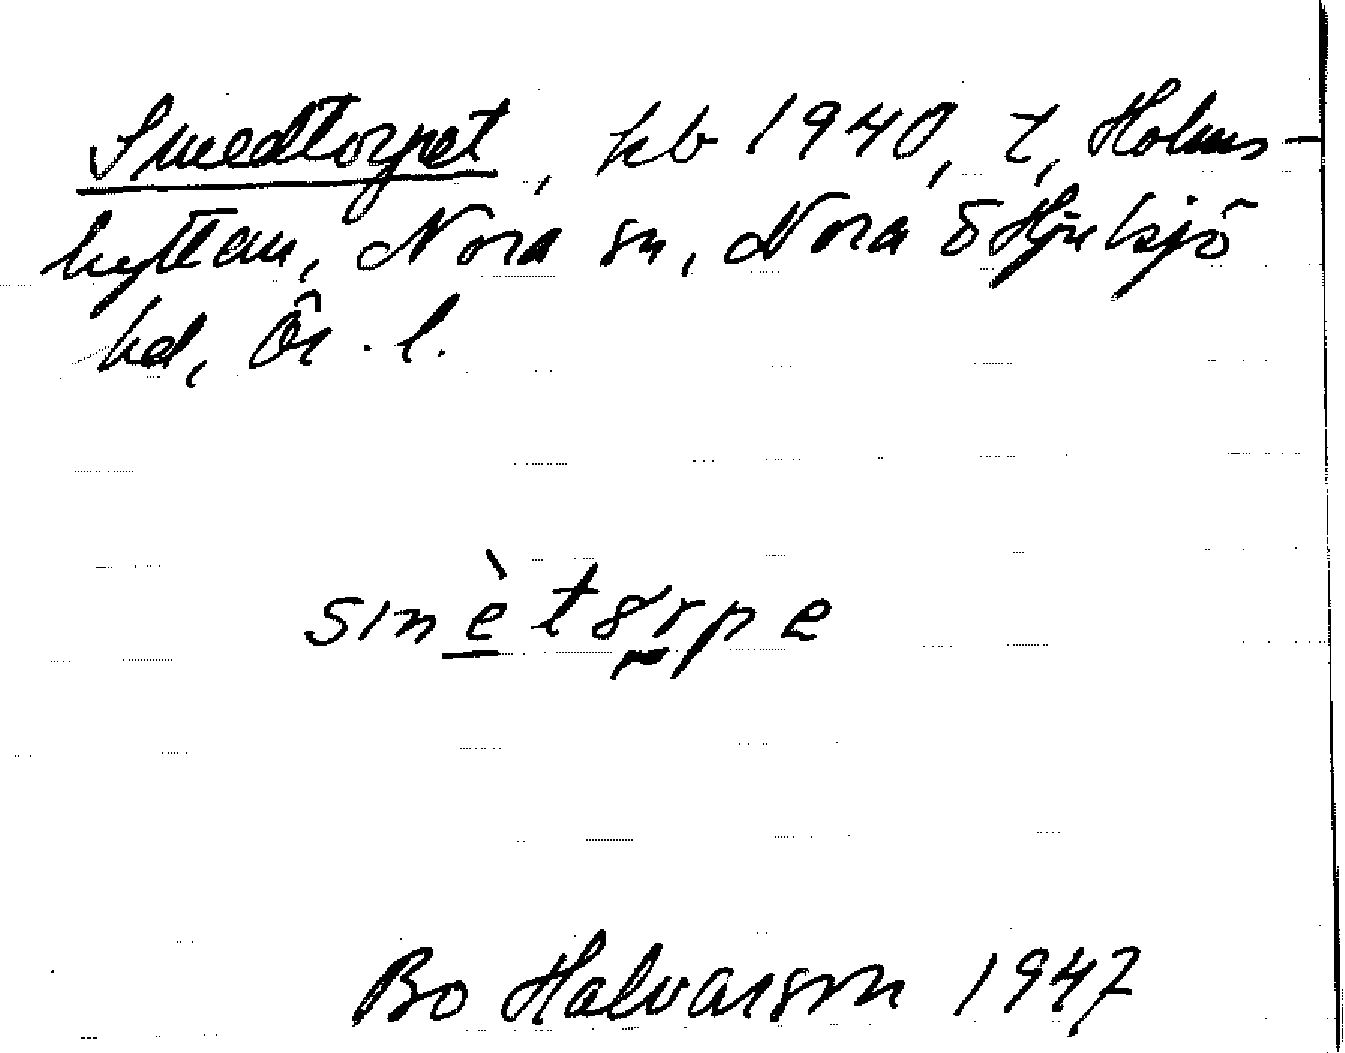 Smedtorpet, kb 1940, t, Holms-
hyttan, Nora sn, Nora o Hjulsjö
hd, Ör. l.
smètorpe
Bo Halvarson 1947